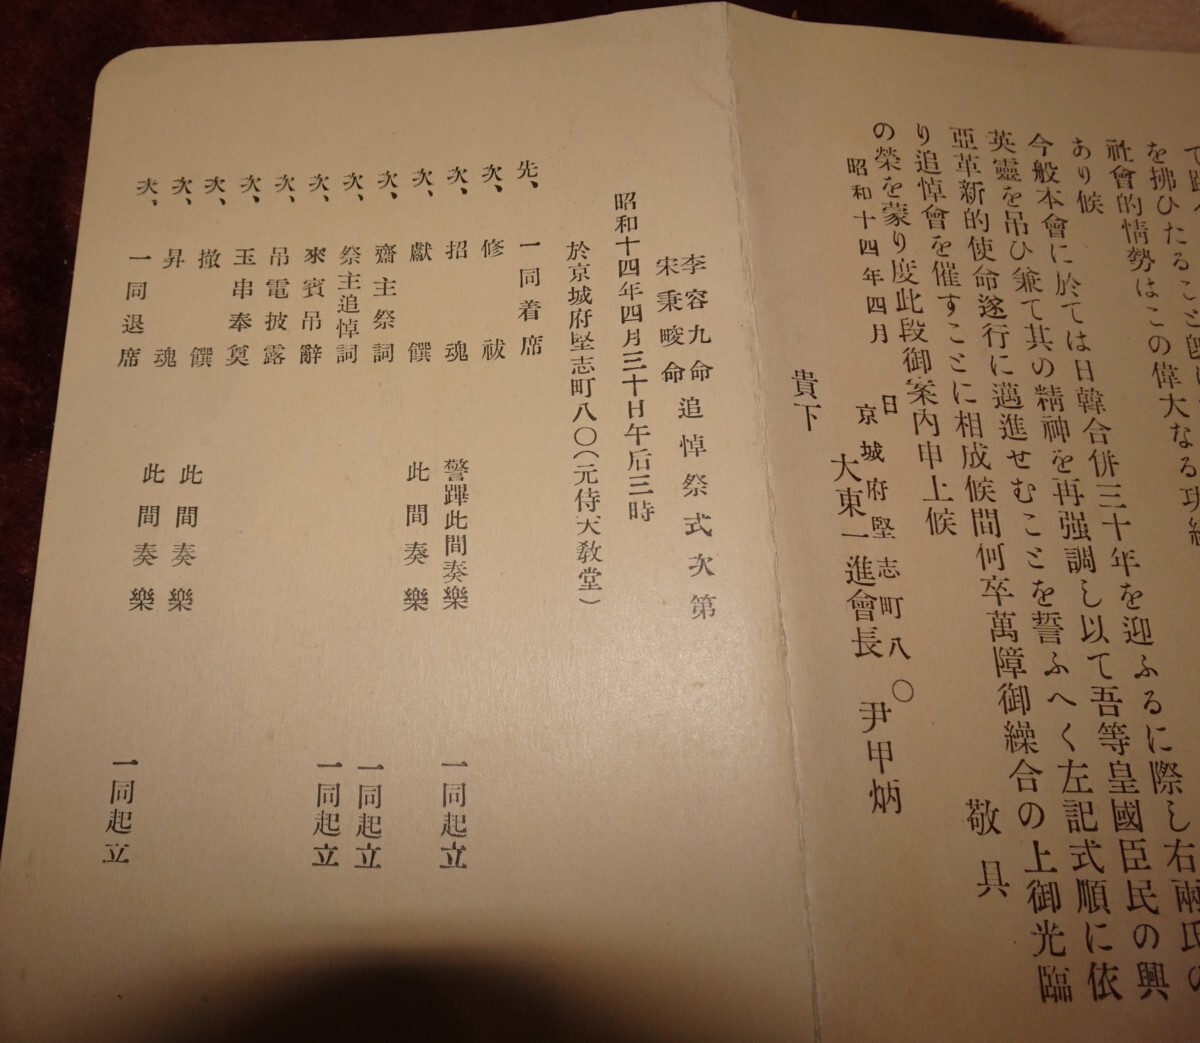 を拂ひたること
社會的情勢はこの偉大なる功績
あり候
今般本會に於ては日韓合併三十年を迎ふるに際し右兩氏の
英靈を吊ひ兼て其の精神を再强調し以て吾等皇國臣民の興
亞革新的使命遂行に邁進せむことを誓ふへく左記式順に依
り追悼會を催すことに相成候間何卒萬障御繰合の上御光臨
の榮を蒙り度此段御案內申上候
敬具
昭和十四年四月 日
京城府堅志町八〇
大東一進會長 尹甲炳
貴下
李容九命
宋秉畯命
追悼祭式次第
昭和十四年四月三十日午后三時
於京城府堅志町八〇(元侍天敎堂)
先、一同着席
次、修祓
次、招魂 警蹕此間奏樂 一同起立
次、獻饌 此間奏樂
次、齋主祭詞 一同起立
次、祭主追悼詞 一同起立
次、來賓吊辭
次、吊電披露
次、玉串奉奠
次、撤饌 此間奏樂
次、昇魂 此間奏樂 一同起立
次、一同退席